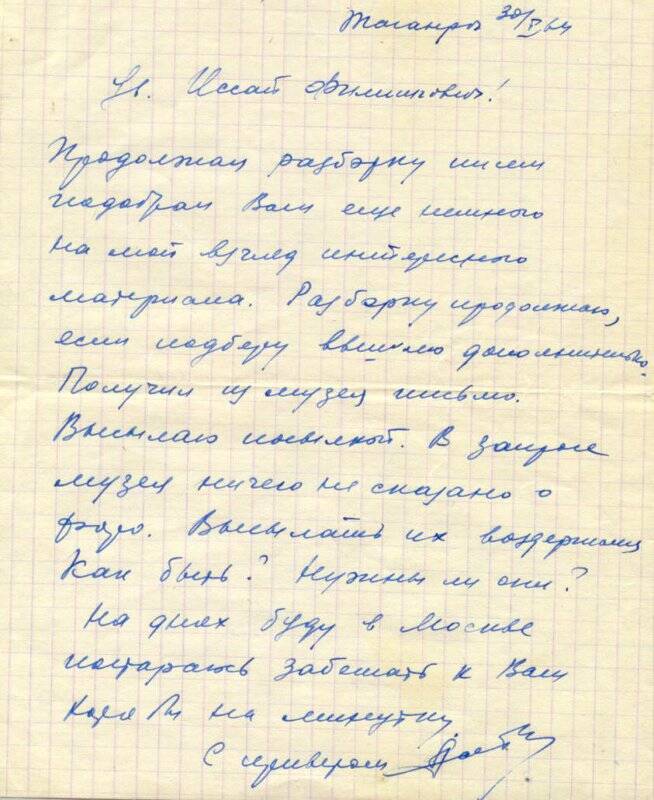 Таганрог 30/V 64
Ув. Исай Филиппович!
Продолжая разборку писем
подобрал Вам еще немного
на мой взгляд интересного
материала. Разборку продолжаю,
если подберу вышлю дополнительно.
Получил из музея письмо.
Высылаю посылкой. В запросе
музея ничего не сказано о
фото. Высылать их воздержался
Как быть? Нужны ли они?
На днях буду в Москве
постараюсь забежать к Вам
хотя бы на минутку.
С приветом